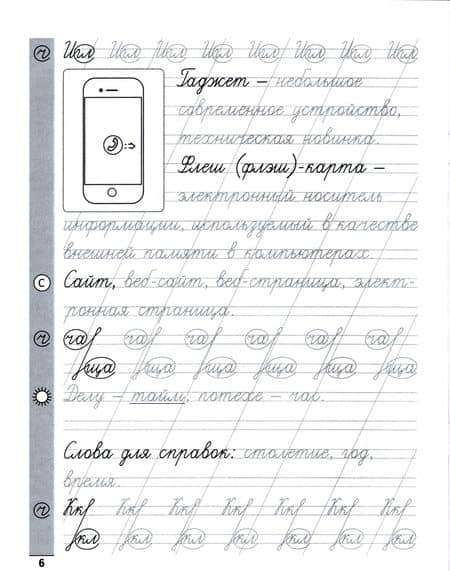 ч Шгл Шгл Шгл Шгл Шгл Шгл Шгл Шгл
Гаджет – небольшое
современное устройство,
техническая новинка.
Флеш (флэш)-карта –
электронный носитель
информации, используемый в качестве
внешней памяти в компьютерах.
С Сайт, веб-сайт, веб-страница, элект-
ронная страница.
ч ча ча ча ча ча ча
ща ща ща ща ща ща ща
Делу – тайм, потехе – час.
Слова для справок: столетие, год,
время.
ч Кк Кк Кк Кк Кк Кк Кк
кл кл кл кл кл кл кл
6